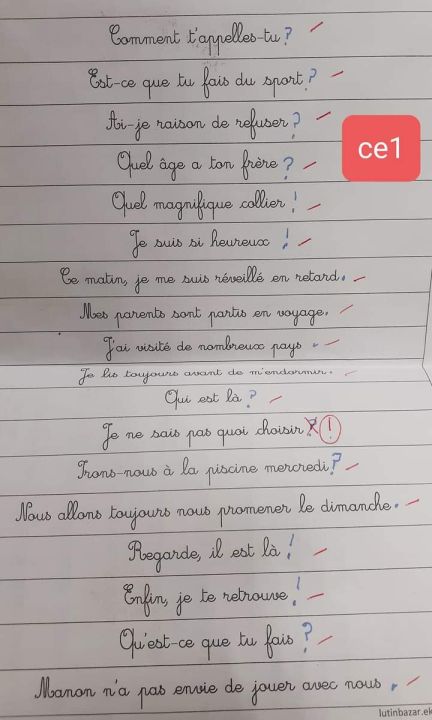 Comment t'appelles-tu ?
Est-ce que tu fais du sport ?
Ai-je raison de refuser ?
ce1
Quel âge a ton frère ?
Quel magnifique collier !
Je suis si heureux !
Ce matin, je me suis réveillé en retard.
Mes parents sont partis en voyage.
J'ai visité de nombreux pays .
Je lis toujours avant de m'endormir.
Qui est là ?
Je ne sais pas quoi choisir ? !
Irons-nous à la piscine mercredi ?
Nous allons toujours nous promener le dimanche.
Regarde, il est là !
Enfin, je te retrouve !
Qu'est-ce que tu fais ?
Manon n'a pas envie de jouer avec nous .
lutinbazar.ek